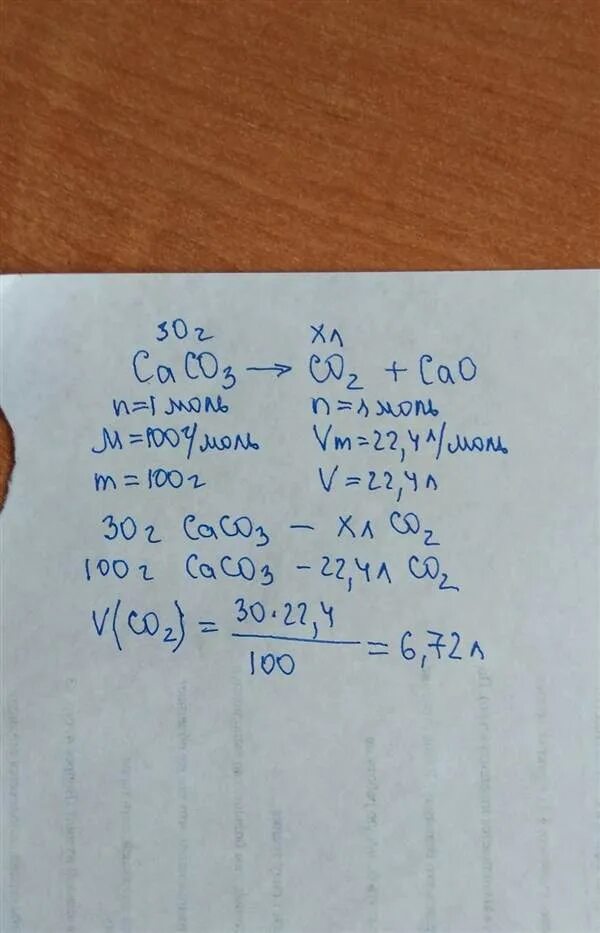 30г хл
CaCO3 → CO2 + CaO
n=1моль n=1моль
M=100г/моль Vm=22,4л/моль
m=100г V=22,4л
30г CaCO3 – хл CO2
100г CaCO3 – 22,4л CO2
V(CO2) = 30·22,4 / 100 = 6,72л